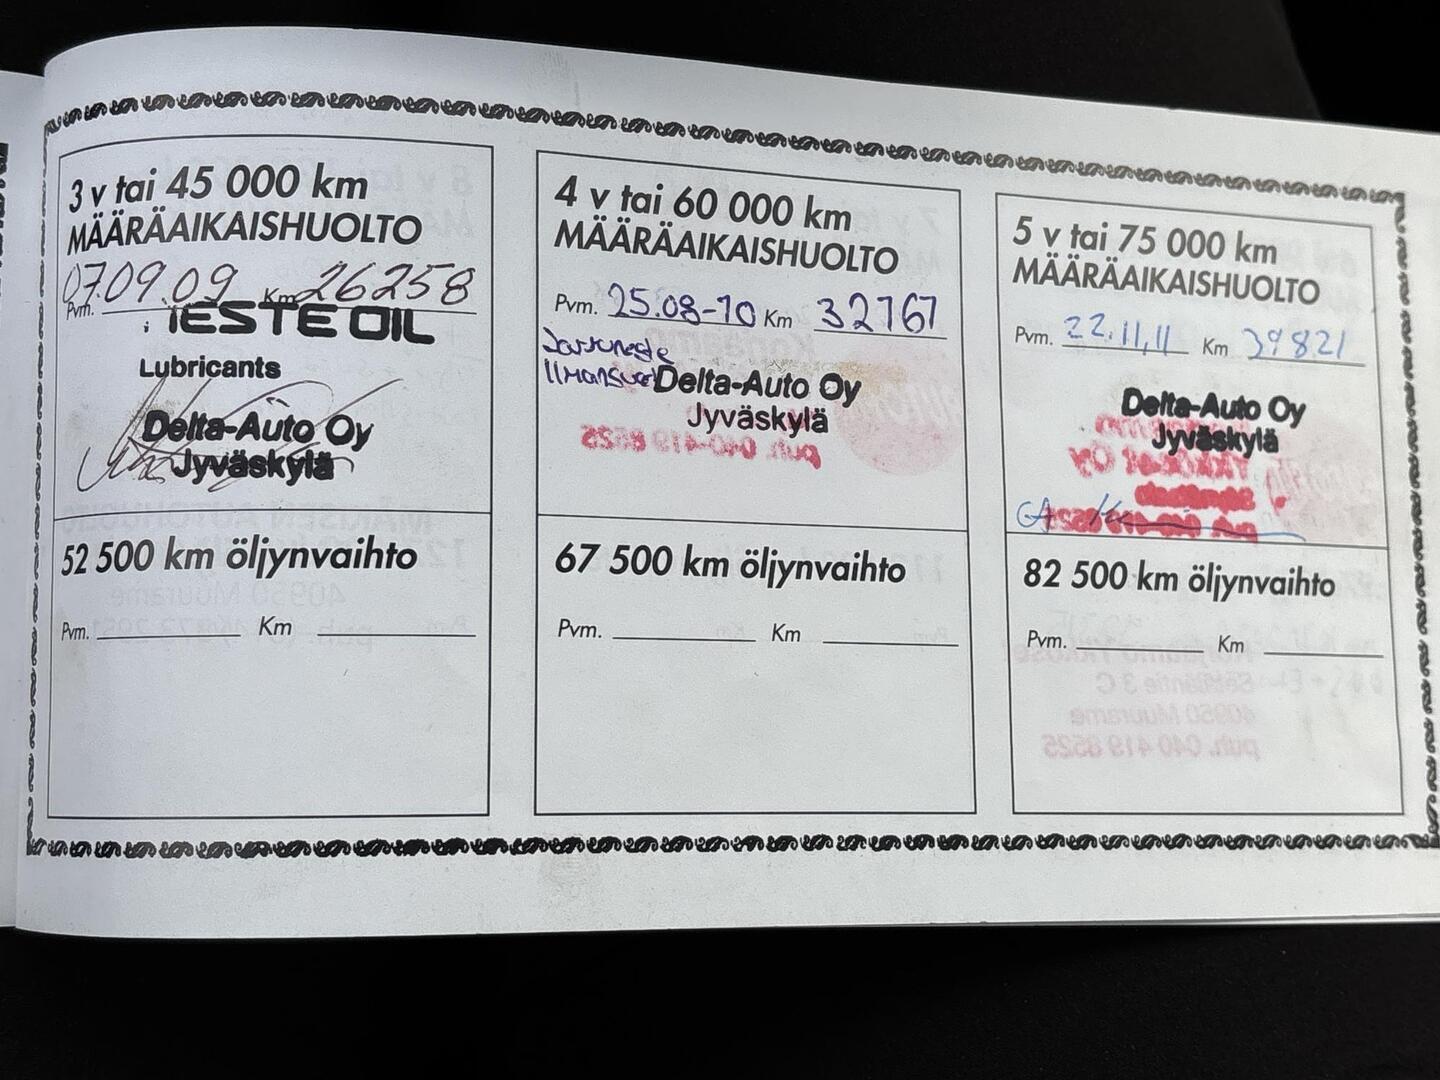 3 v tai 45 000 km
MÄÄRÄAIKAISHUOLTO
Pvm. 07.09.09 Km 26258
NESTE OIL
Lubricants
Delta-Auto Oy
Jyväskylä
52 500 km öljynvaihto
Pvm. Km
4 v tai 60 000 km
MÄÄRÄAIKAISHUOLTO
Pvm. 25.08-10 Km 32767
Jarruneste
Delta-Auto Oy
Jyväskylä
puh. 040-419 8525
67 500 km öljynvaihto
Pvm. Km
5 v tai 75 000 km
MÄÄRÄAIKAISHUOLTO
Pvm. 22.11.11 Km 39821
Delta-Auto Oy
Jyväskylä
82 500 km öljynvaihto
Pvm. Km
40950 Muurame
puh. 040 419 8525